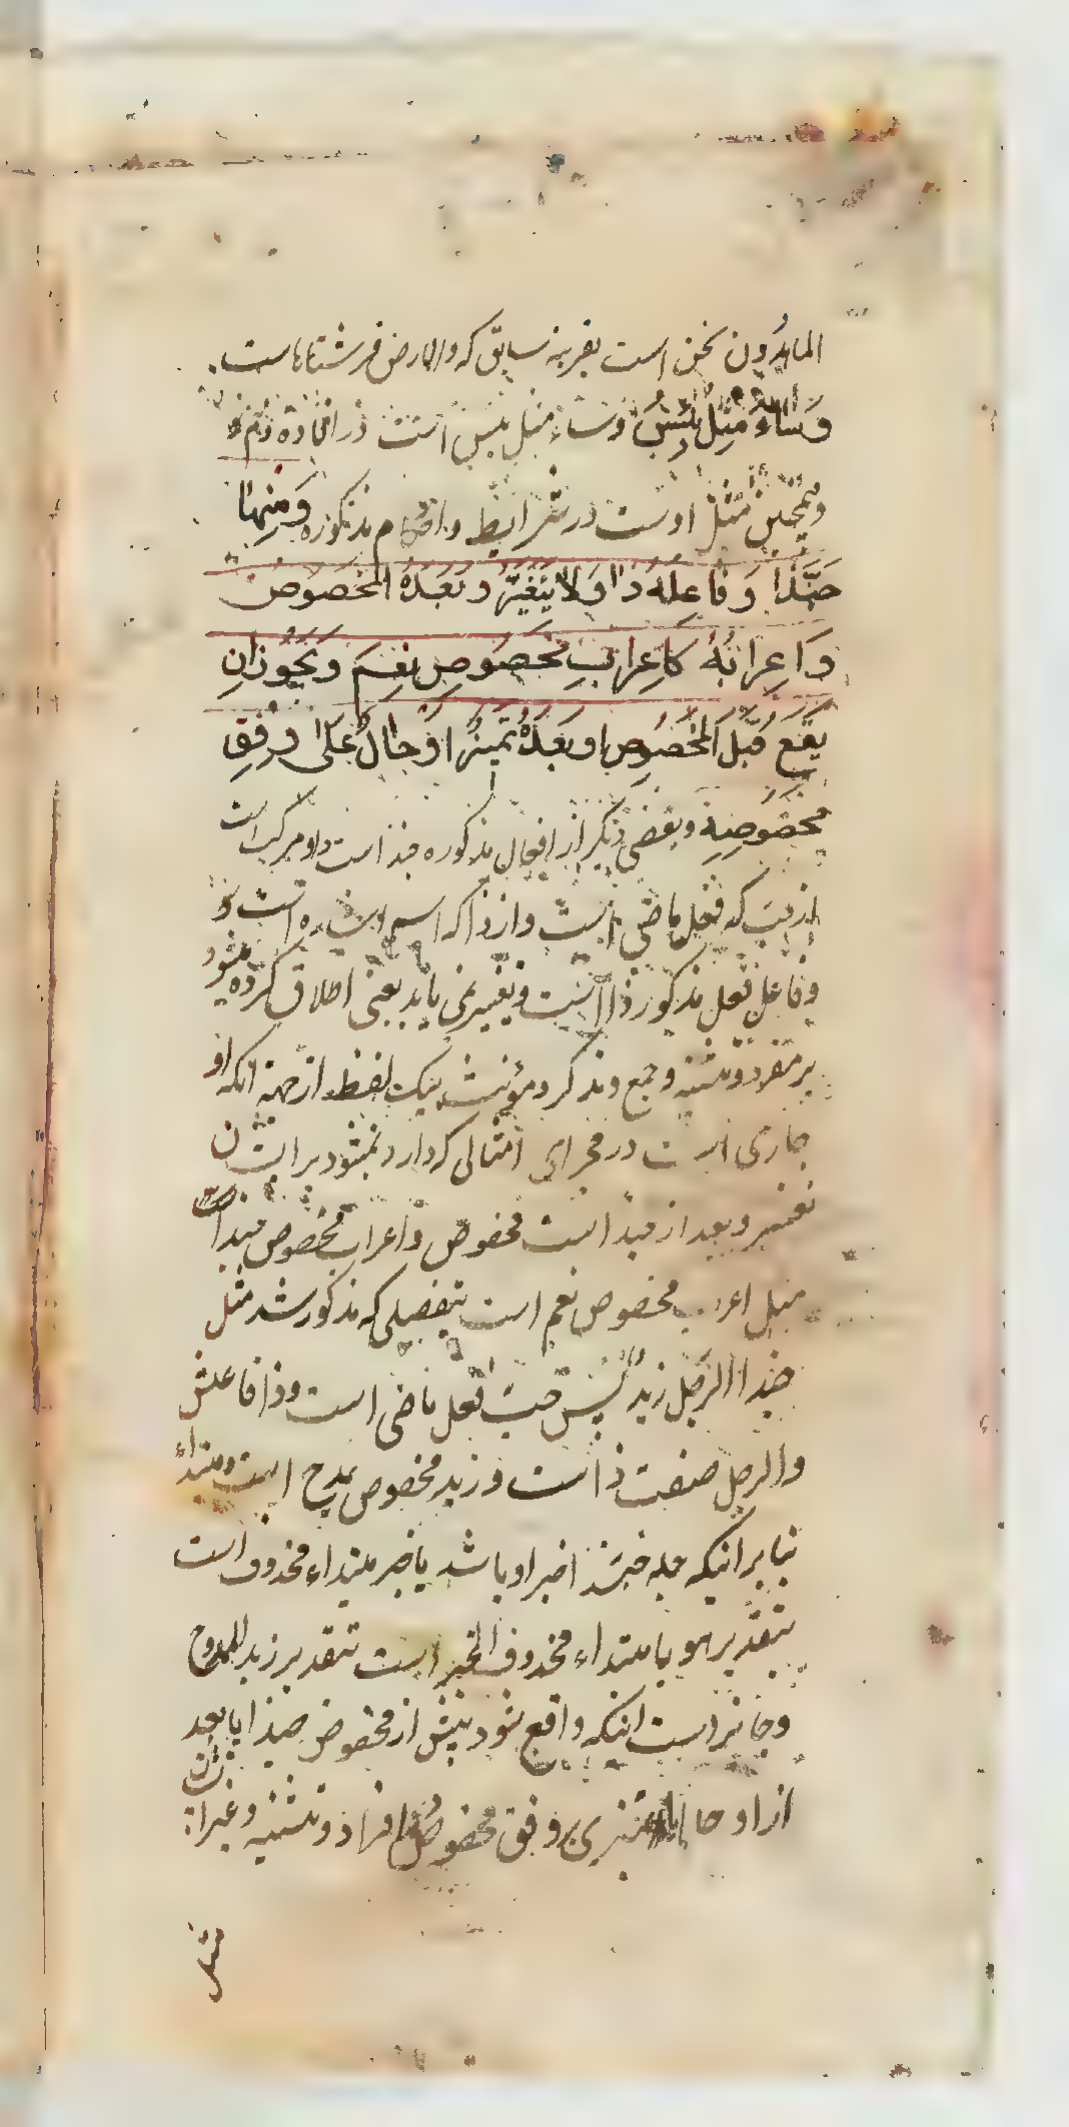 الماهدون نحن است بقرینه سابق که والارض فرشناهاست
وَسَاءَ مِثلُ بِئسَ وساء مثل بئس است در افاده ذم
و همچنین مثل اوست در شرایط و احکام مذکوره وَمِنهَا
حَبَّذَا وَفَاعِلُهُ ذَا وَلَا يَتَغَيَّرُ وَبَعدَهُ المَخصُوصُ
وَاِعرَابُهُ كَاِعرَابِ مَخصُوصِ نِعمَ وَيَجُوزُ اَن
يَقَعَ قَبلَ المَخصُوصِ اَو بَعدَهُ تَمیِیزٌ اَو حَالٌ عَلَى وَفقِ
مَخصُوصِهِ و بعضی دیگر از افعال مذکوره حبذا است و او مرکب است
از حب که فعل ماضی است و از ذا که اسم اشاره است
و فاعل فعل مذکور ذا است و تغییر نمی یابد یعنی اطلاق کرده میشود
بر مفرد و تثنیه و جمع و مذکر و مؤنث بیک لفظ از جهة آنکه او
جاری است در مجرای امثالی که وارد نمیشود بر ایشان
تغییر و بعد از حبذا است مخصوص و اعراب مخصوص حبذا است
مثل اعراب مخصوص نعم است بتفصیلی که مذکور شد مثل
حبذا الرجل زید پس حب فعل ماضی است و ذا فاعلش
والرجل صفت ذا است و زید مخصوص بمدح است و مبتداء
بنابر اینکه جمله حبذا خبر او باشد یا خبر مبتداء محذوف است
بتقدیر هو یا مبتداء محذوف الخبر است بتقدیر زید الممدوح
و جایز است اینکه واقع شود پیش از مخصوص حبذا یا بعد
از او حال یا تمیزی بر وفق مخصوص در افراد و تثنیه و غیر ایشان
مثل